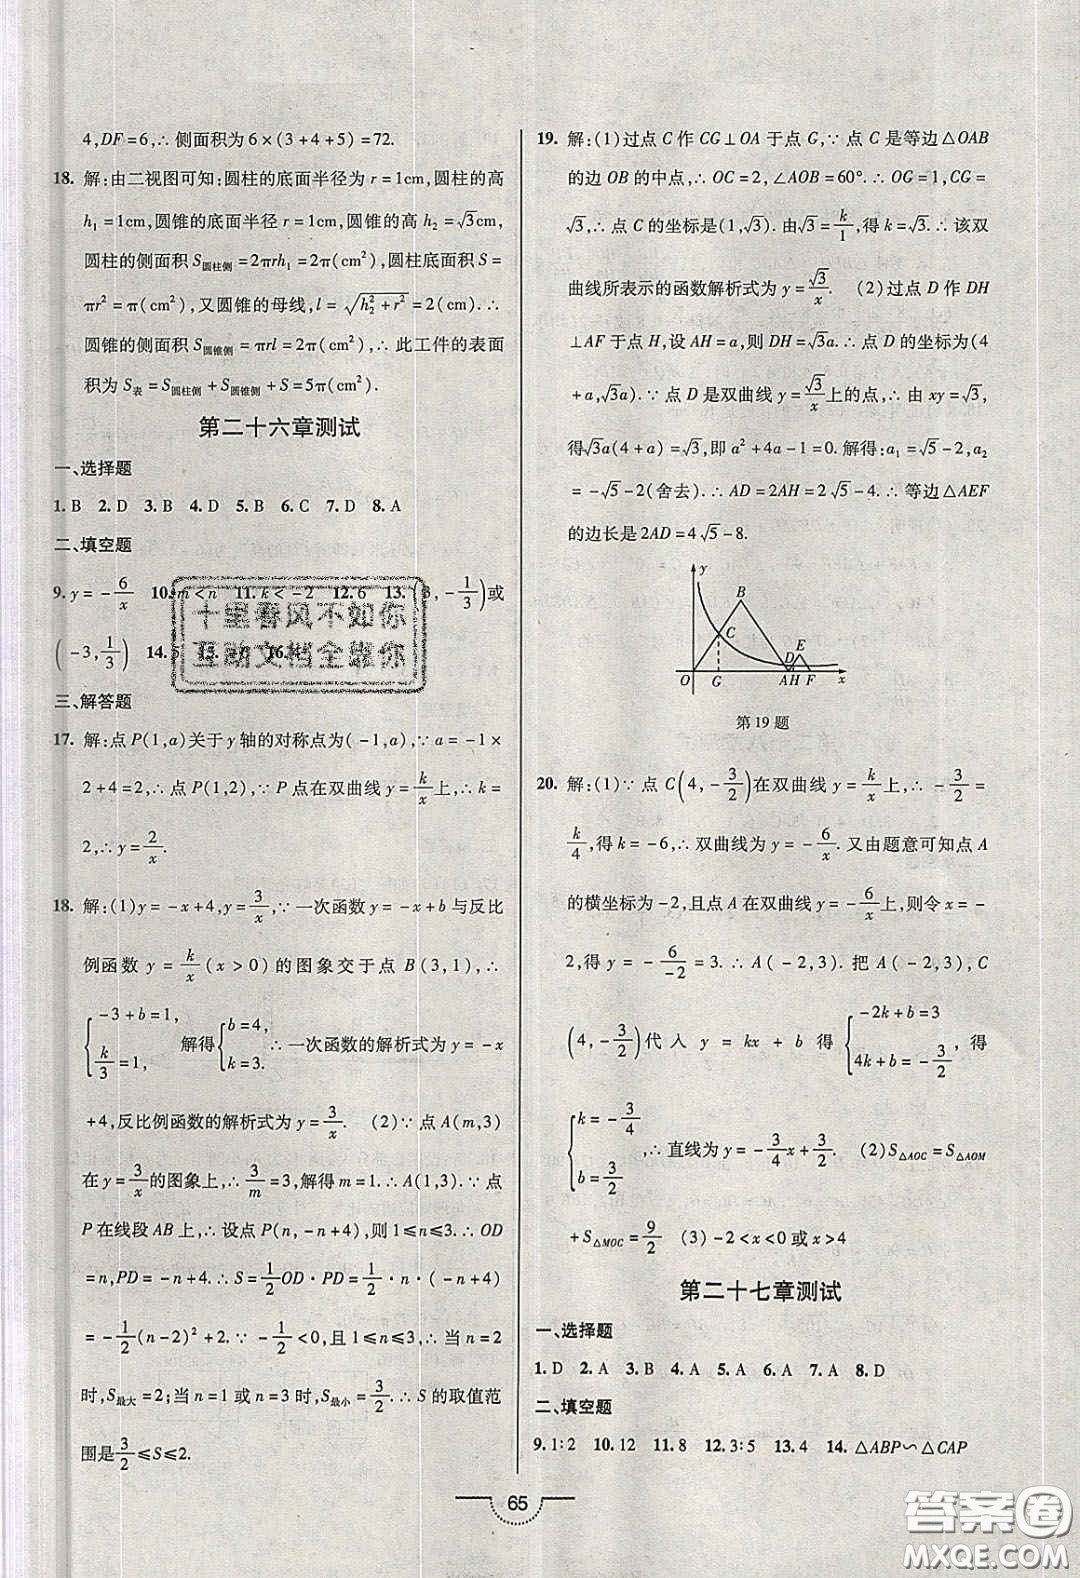 4,DF=6,∴侧面积为6×(3+4+5)=72.
18. 解:由二视图可知:圆柱的底面半径为r=1cm,圆柱的高
h₁=1cm,圆锥的底面半径r=1cm,圆锥的高h₂=√3cm,
圆柱的侧面积S圆柱侧=2πrh₁=2π(cm²),圆柱底面积S=
πr²=π(cm²),又圆锥的母线,l=√(h₂²+r²)=2(cm).∴
圆锥的侧面积S圆锥侧=πrl=2π(cm²),∴此工件的表面
积为S表=S圆柱侧+S圆锥侧+S=5π(cm²).
第二十六章测试
一、选择题
1. B 2. D 3. B 4. D 5. B 6. C 7. D 8. A
二、填空题
9. y=-6/x 10. m<n 11. k<-2 12. 6 13. (3,-1/3)或
(-3,1/3) 14. 5
三、解答题
17. 解:点P(1,a)关于y轴的对称点为(-1,a),∵a=-1×
2+4=2,∴点P(1,2),∵P点在双曲线y=k/x上,∴k=
2,∴y=2/x.
18. 解:(1)y=-x+4,y=3/x,∵一次函数y=-x+b与反比
例函数y=k/x(x>0)的图象交于点B(3,1),∴
{-3+b=1, k/3=1, 解得{b=4, k=3. ∴一次函数的解析式为y=-x
+4,反比例函数的解析式为y=3/x. (2)∵点A(m,3)
在y=3/x的图象上,∴3/m=3,解得m=1.∴A(1,3).∵点
P在线段AB上,∴设点P(n,-n+4),则1≤n≤3.∴OD
=n,PD=-n+4.∴S=1/2OD·PD=1/2·n·(-n+4)
=-1/2(n-2)²+2.∵-1/2<0,且1≤n≤3,∴当n=2
时,S最大=2;当n=1或n=3时,S最小=3/2.∴S的取值范
围是3/2≤S≤2.
19. 解:(1)过点C作CG⊥OA于点G,∵点C是等边△OAB
的边OB的中点,∴OC=2,∠AOB=60°.∴OG=1,CG=
√3,∴点C的坐标是(1,√3).由√3=k/1,得k=√3.∴该双
曲线所表示的函数解析式为y=√3/x. (2)过点D作DH
⊥AF于点H,设AH=a,则DH=√3a.∴点D的坐标为(4
+a,√3a).∵点D是双曲线y=√3/x上的点,∴由xy=√3,
得√3a(4+a)=√3,即a²+4a-1=0.解得:a₁=√5-2,a₂
=-√5-2(舍去).∴AD=2AH=2√5-4.∴等边△AEF
的边长是2AD=4√5-8.
y
B
C
E
D
O G A H F x
第19题
20. 解:(1)∵点C(4,-3/2)在双曲线y=k/x上,∴-3/2=
k/4,得k=-6,∴双曲线为y=-6/x.又由题意可知点A
的横坐标为-2,且点A在双曲线y=-6/x上,则令x=-
2,得y=-6/-2=3.∴A(-2,3).把A(-2,3),C
(4,-3/2)代入y=kx+b得{-2k+b=3 4k+b=-3/2,得
{k=-3/4 b=3/2,∴直线为y=-3/4x+3/2. (2)S△AOC=S△AOM
+S△MOC=9/2 (3)-2<x<0或x>4
第二十七章测试
一、选择题
1. D 2. A 3. B 4. A 5. A 6. A 7. A 8. D
二、填空题
9. 1∶2 10. 12 11. 8 12. 3∶5 13. 4 14. △ABP∽△CAP
65
十里春风不如你
互动文档全靠你
答案圈
MXQE.COM